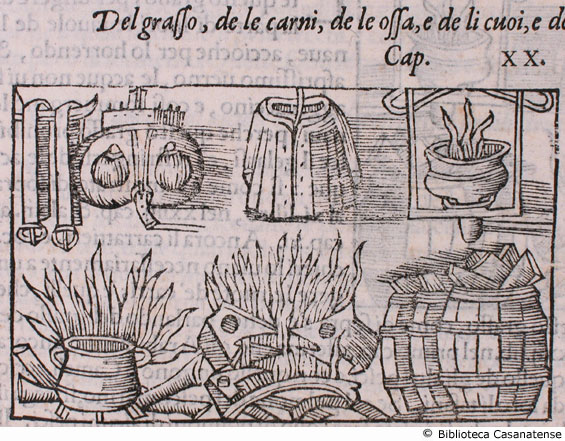 Del graſſo, de le carni, de le oſſa, e de li cuoi, e de
Cap. XX.
© Biblioteca Casanatense